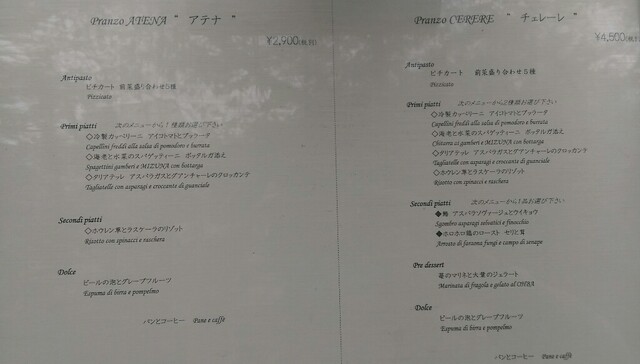 Pranzo ATENA “ アテナ ”
¥2,900(税別)
Antipasto
ピチカート 前菜盛り合わせ5種
Pizzicato
Primi piatti 次のメニューから1種類お選び下さい
◇冷製カッペリーニ アイコトマトとブッラータ
Capellini freddi alla salsa di pomodoro e burrata
◇海老と水菜のスパゲッティーニ ボッタルガ添え
Spagettini gamberi e MIZUNA con bottarga
◇タリアテッレ アスパラガスとグアンチャーレのクロッカンテ
Tagliatelle con asparagi e croccante di guanciale
Secondi piatti
◇ホウレン草とラスケーラのリゾット
Risotto con spinacci e raschera
Dolce
ビールの泡とグレープフルーツ
Espuma di birra e pompelmo
パンとコーヒー Pane e caffè
Pranzo CERERE “ チェレーレ ”
¥4,500(税別)
Antipasto
ピチカート 前菜盛り合わせ5種
Pizzicato
Primi piatti 次のメニューから2種類お選び下さい
◇冷製カッペリーニ アイコトマトとブッラータ
Capellini freddi alla salsa di pomodoro e burrata
◇海老と水菜のスパゲッティーニ ボッタルガ添え
Chitarra ai gamberi e MIZUNA con bottarga
◇タリアテッレ アスパラガスとグアンチャーレのクロッカンテ
Tagliatelle con asparagi e croccante di guanciale
◇ホウレン草とラスケーラのリゾット
Risotto con spinacci e raschera
Secondi piatti 次のメニューから1品お選び下さい
◆鯖 アスパラソヴァージュとウイキョウ
Sgombro asparagi selvatici e finocchio
◆ホロホロ鶏のロースト セリと茸
Arrosto di faraona fungi e campo di senape
Pre dessert
苺のマリネと大葉のジェラート
Marinata di fragola e gelato al OHBA
Dolce
ビールの泡とグレープフルーツ
Espuma di birra e pompelmo
パンとコーヒー Pane e caffè